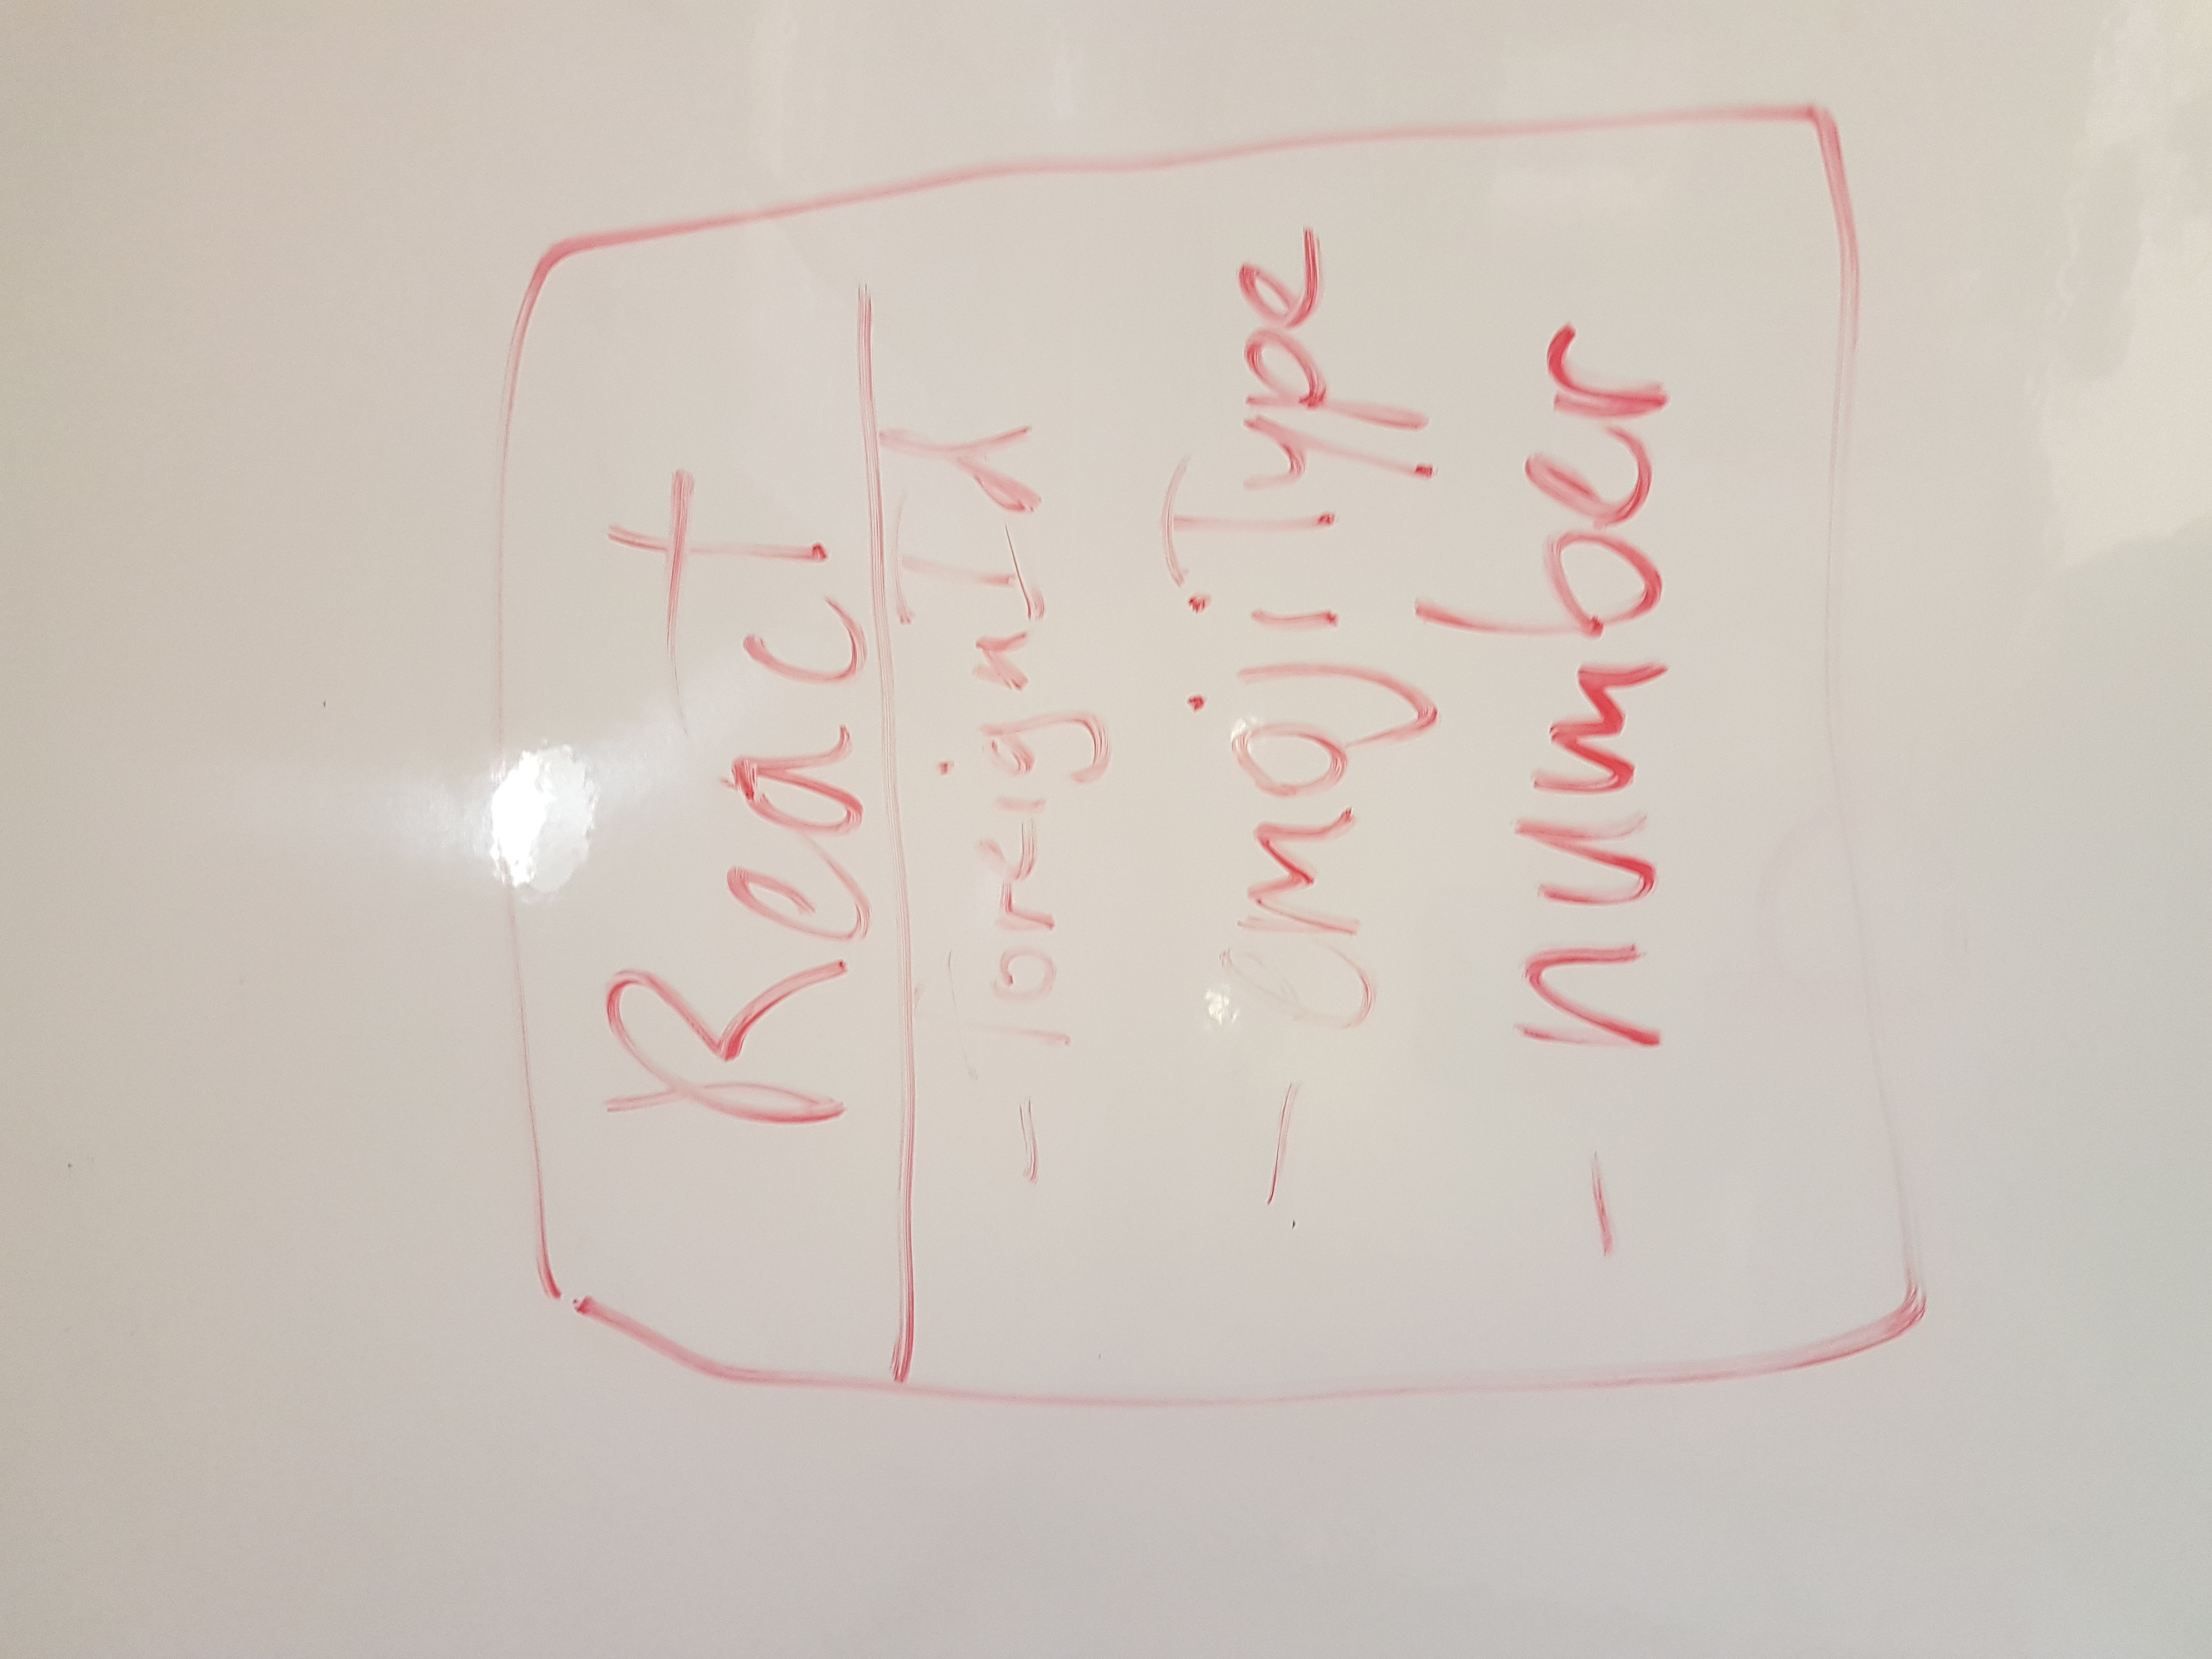 React
- foreignId
- emojiType
- number